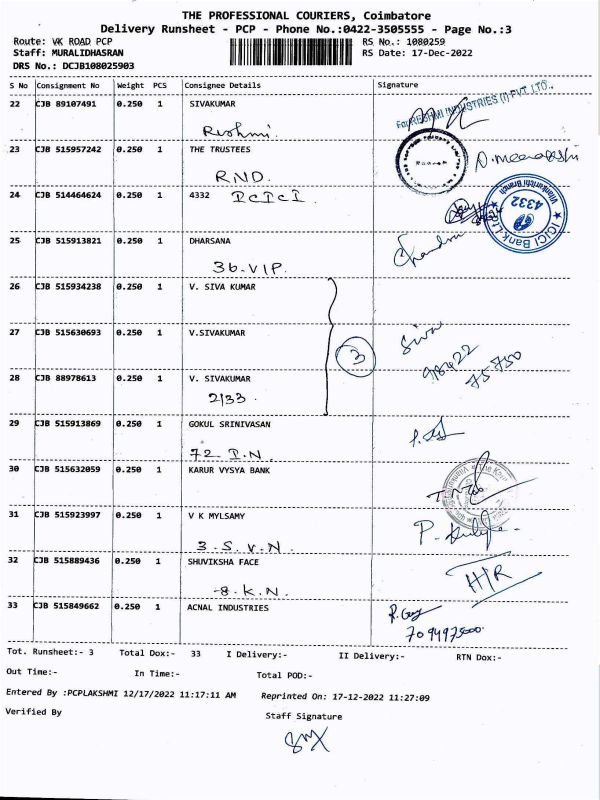 THE PROFESSIONAL COURIERS, Coimbatore
Delivery Runsheet - PCP - Phone No.:0422-3505555 - Page No.:3
Route: VK ROAD PCP RS No.: 1080259
Staff: MURALIDHASRAN RS Date: 17-Dec-2022
DRS No.: DCJB108025903
S No Consignment No Weight PCS Consignee Details Signature
22 CJB 89107491 0.250 1 SIVAKUMAR
For RESHMI INDUSTRIES (I) PVT. LTD.,
Reshmi
23 CJB 515957242 0.250 1 THE TRUSTEES
RND.
24 CJB 514464624 0.250 1 4332 ICICI
ICICI Bank Ltd
4332
25 CJB 515913821 0.250 1 DHARSANA
Chandra
36-VIP.
26 CJB 515934238 0.250 1 V. SIVA KUMAR
27 CJB 515630693 0.250 1 V.SIVAKUMAR
Siva
3
98422
75750
28 CJB 88978613 0.250 1 V. SIVAKUMAR
2133
29 CJB 515913869 0.250 1 GOKUL SRINIVASAN
72 I.N.
30 CJB 515632059 0.250 1 KARUR VYSYA BANK
31 CJB 515923997 0.250 1 V K MYLSAMY
3.S.V.N.
32 CJB 515889436 0.250 1 SHUVIKSHA FACE
H/R
8.K.N.
33 CJB 515849662 0.250 1 ACNAL INDUSTRIES
Tot. Runsheet:- 3 Total Dox:- 33 I Delivery:- II Delivery:- RTN Dox:-
Out Time:- In Time:- Total POD:-
Entered By :PCPLAKSHMI 12/17/2022 11:17:11 AM Reprinted On: 17-12-2022 11:27:09
Verified By Staff Signature